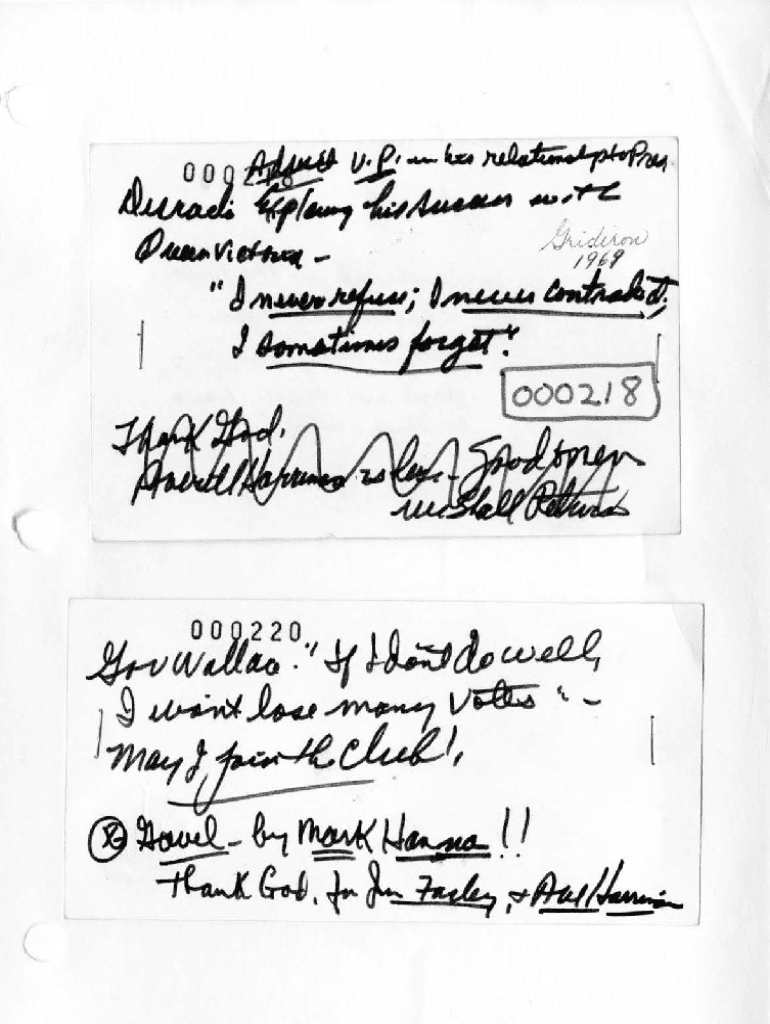 000218
Advice V.P. in his relationship to Pres
Disraeli Explaining his success with
Queen Victoria -
Gridiron
1969
"I never refuse; I never contradict;
I sometimes forget."
000218
Thank God.
Averell Harriman Goodspeed
000220
Gov Wallace. "If I don't do well,
I won't lose many votes" -
May I join the Club!
Gavel - by Mark Hanna!!
Thank God, for Jim Farley, & Ave Harriman